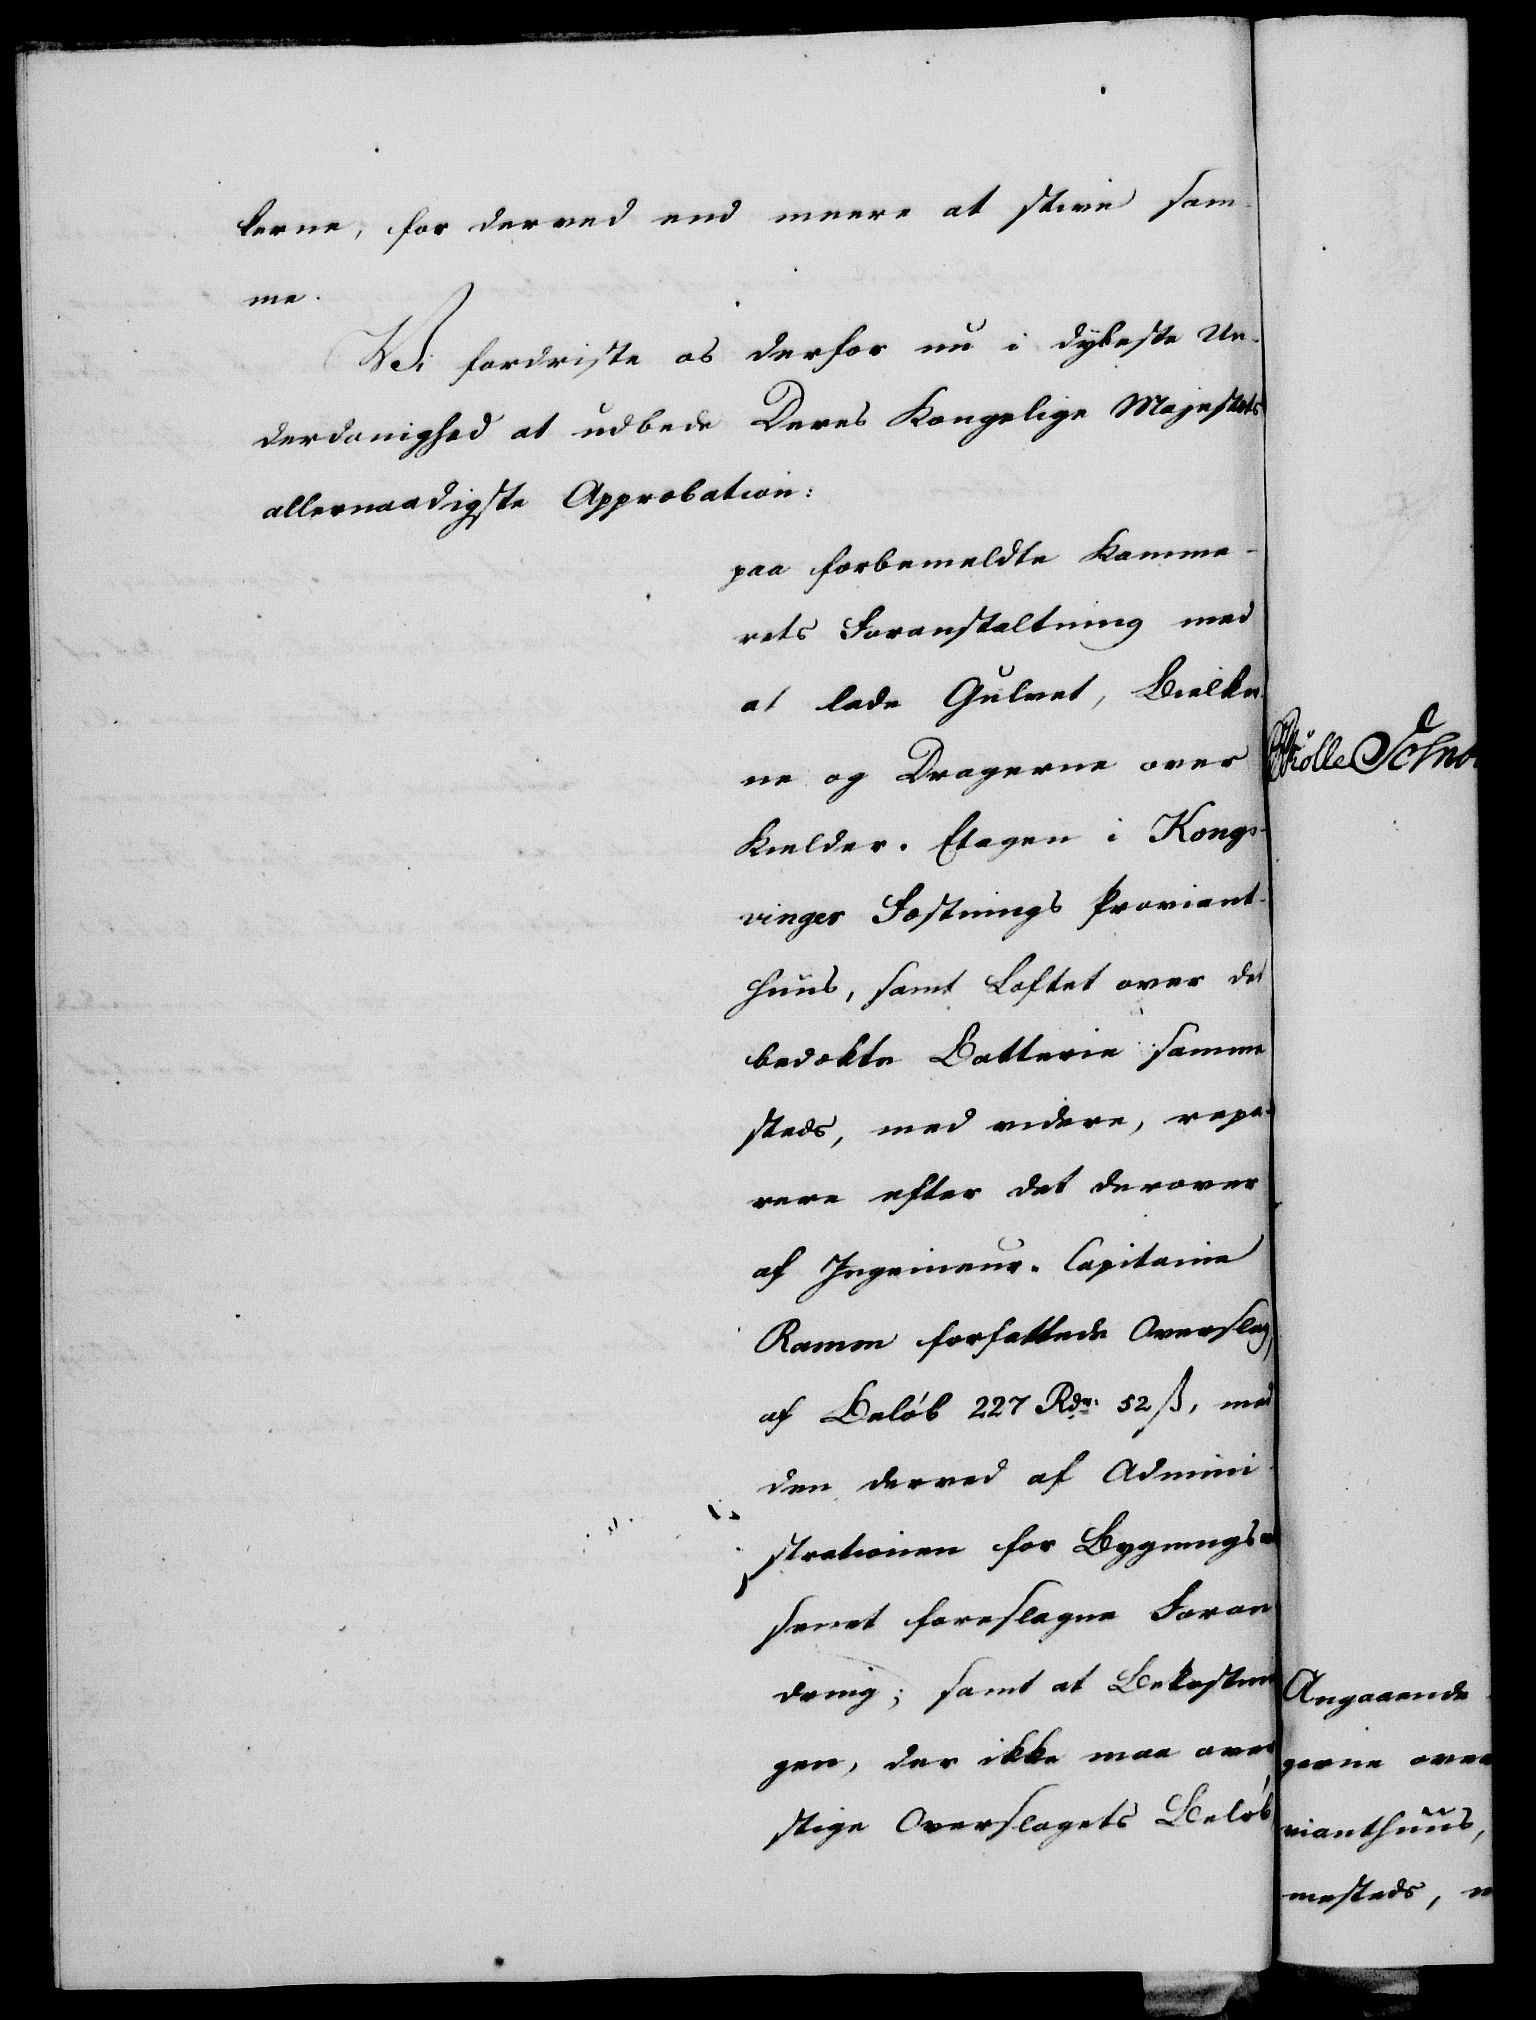 lerne, for derved end meere at stive sam-
me.
Vi fordriste os derfor nu i dybeste Un-
derdanighed at udbede Deres Kongelige Majestæts
allernaadigste Approbation:
paa forbemeldte Kamme-
rets Foranstaltning med
at lade Gulvet, Bielker-
ne og Dragerne over
Kielder-Etagen i Kongs-
vinger Fæstnings Proviant-
huus, samt Loftet over det
bedækte Batterie samme
steds, med videre, repa-
rere efter det derover
af Ingenieur-Capitaine
Ramm forfattede Overslag,
af Beløb 227 Rdr: 52 ß, med
den derved af Admini-
strationen for Bygnings-
senet foreslagne Foran
dring; samt at Bekostnin
gen, der ikke maa over
stige Overslagets Beløb
Angaaende
gerne over
vianthuus,
mesteds,